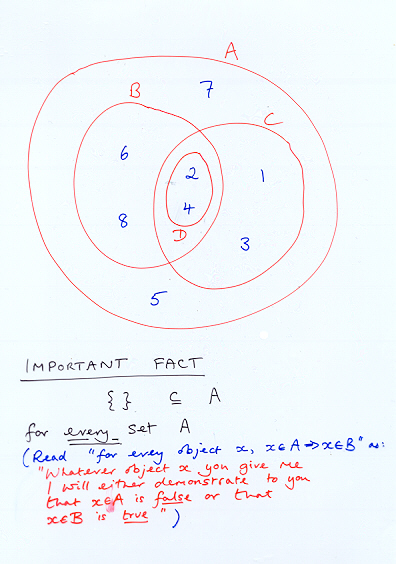 A
7
B
C
6
2
1
8
4
D
3
5
IMPORTANT FACT
{ } ⊆ A
for every set A
(Read "for every object x, x∈A ⇒ x∈B" as:
"Whatever object x you give me
I will either demonstrate to you
that x∈A is false or that
x∈B is true")